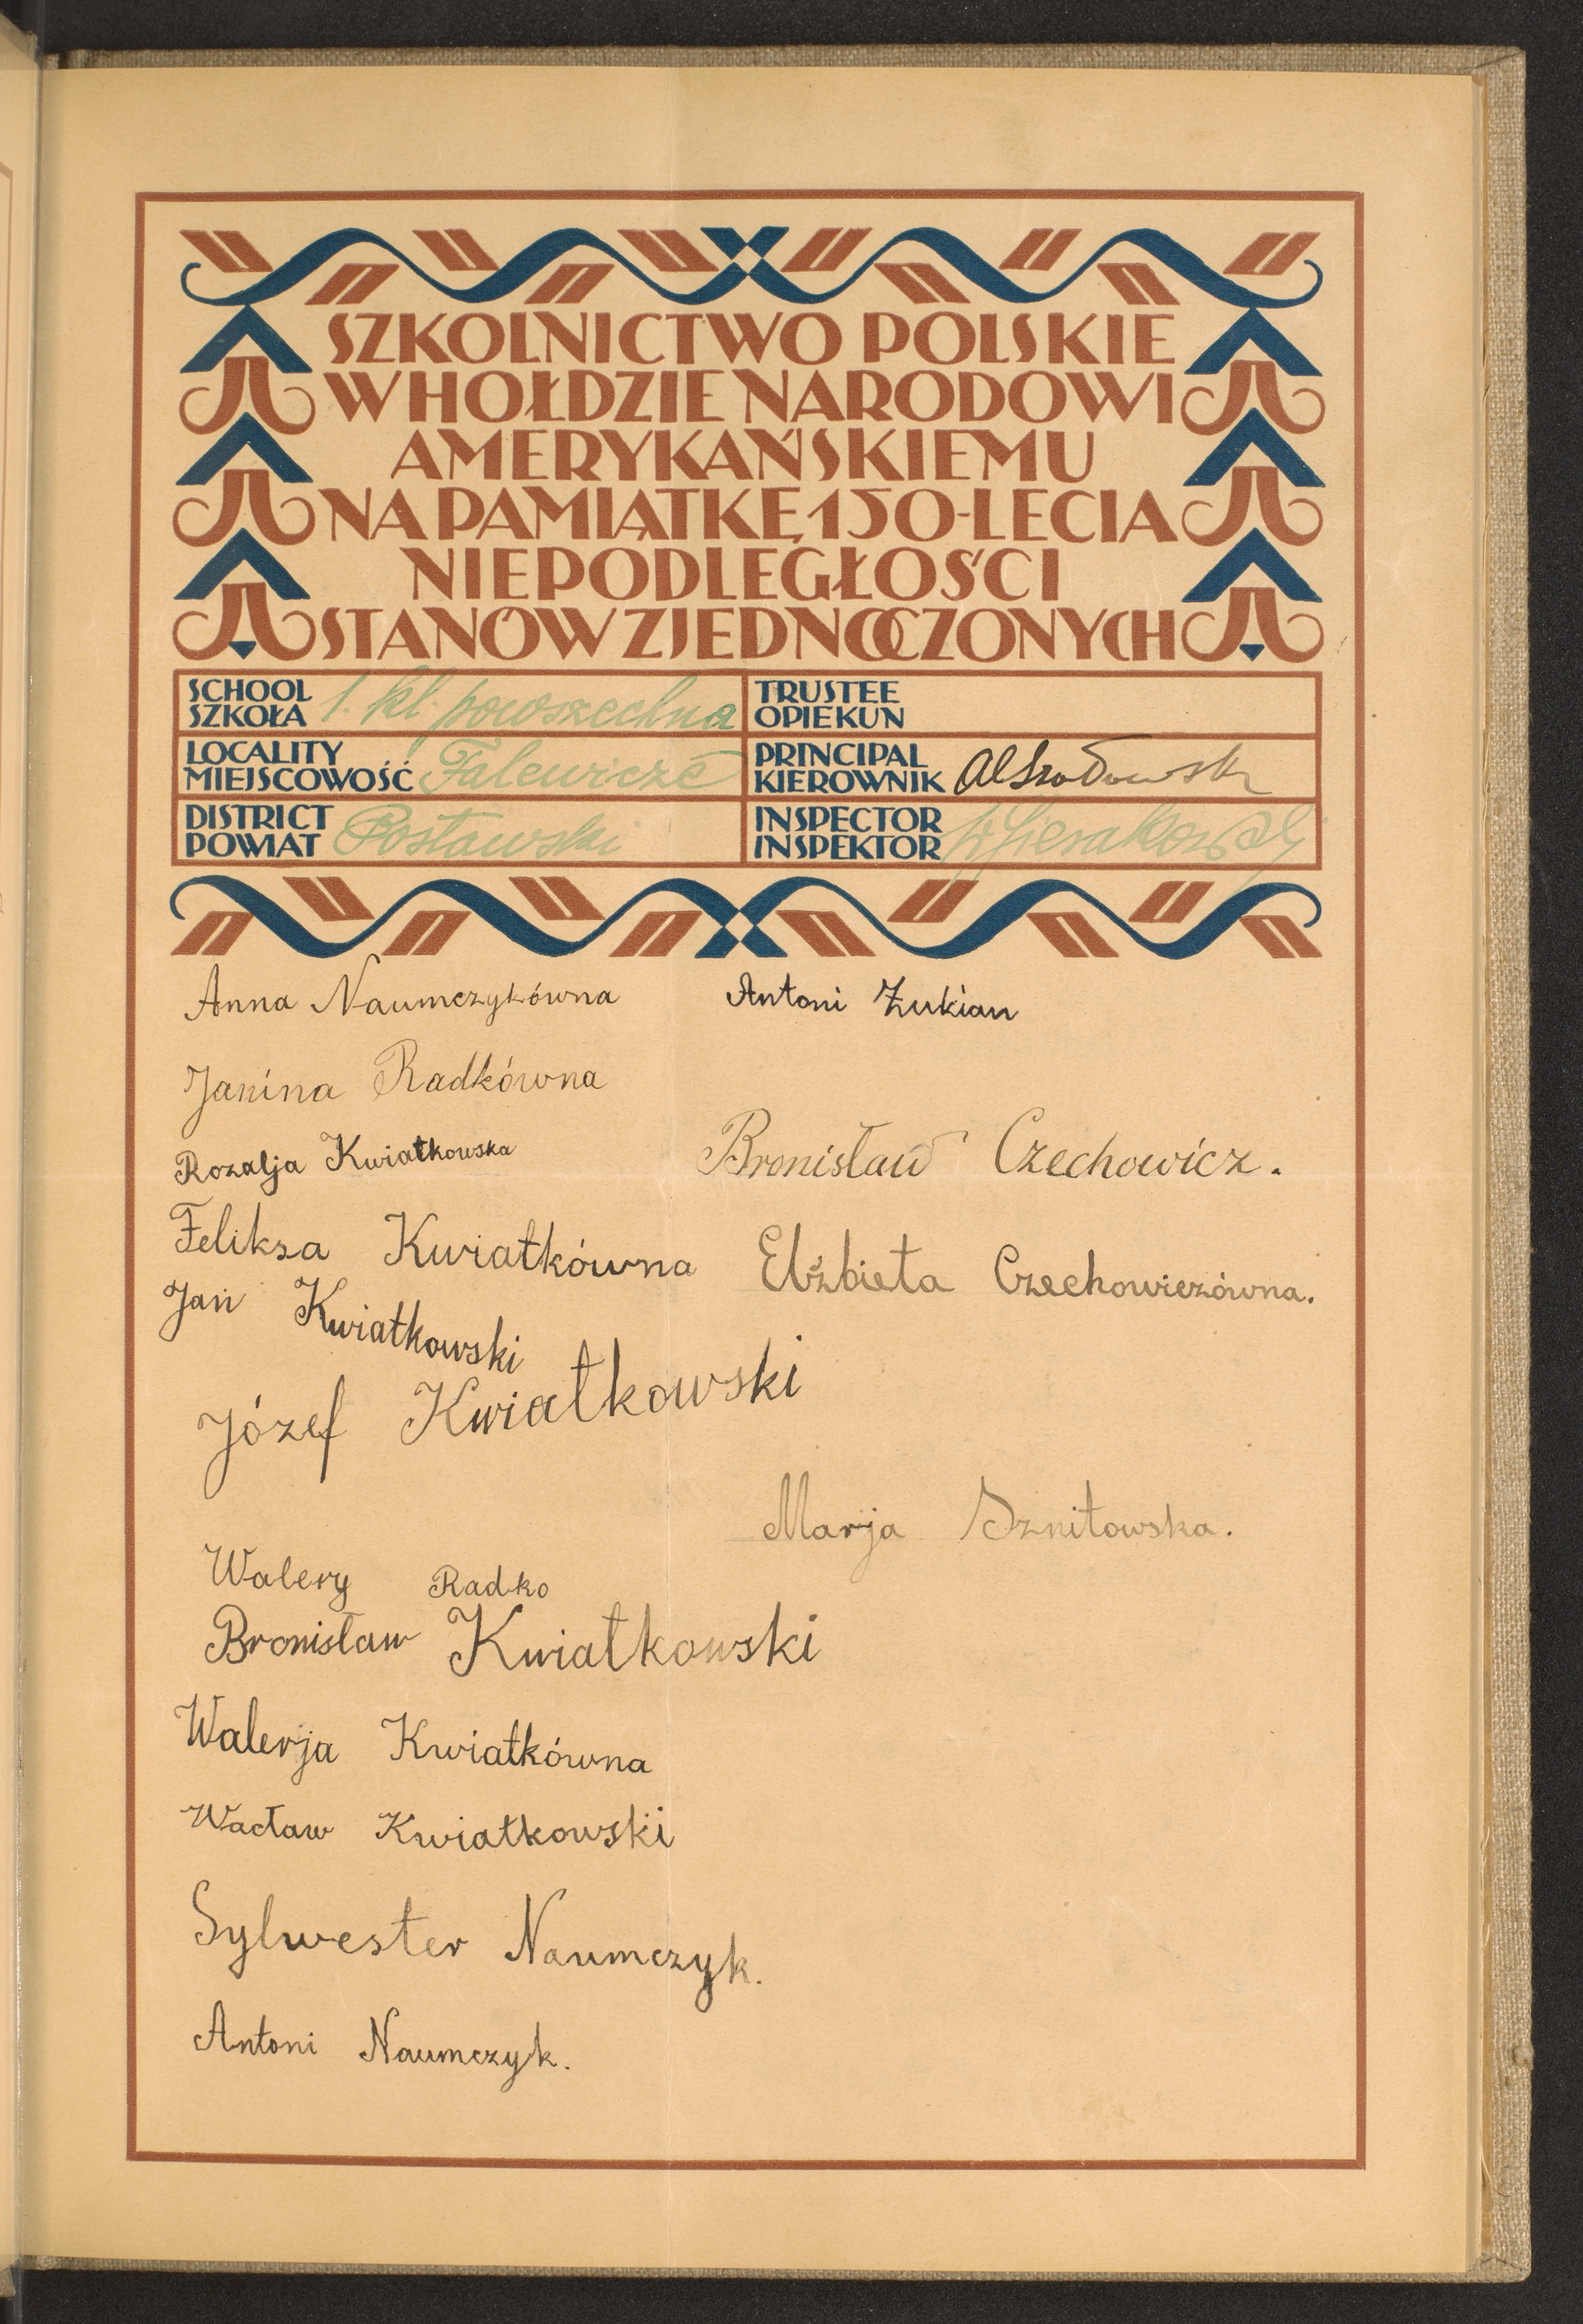 SZKOLNICTWO POLSKIE
W HOŁDZIE NARODOWI
AMERYKAŃSKIEMU
NA PAMIĄTKĘ 150-LECIA
NIEPODLEGŁOŚCI
STANÓW ZJEDNOCZONYCH
SCHOOL
SZKOŁA 1. kl. powszechna
TRUSTEE
OPIEKUN
LOCALITY
MIEJSCOWOŚĆ Falewicze
PRINCIPAL
KIEROWNIK
DISTRICT
POWIAT Postawski
INSPECTOR
INSPEKTOR
Anna Naumczykówna
Antoni Żukian
Janina Radkówna
Rozalja Kwiatkowska
Bronisław Czechowicz.
Feliksa Kwiatkówna
Elżbieta Czechowiczówna.
Jan Kwiatkowski
Józef Kwiatkowski
Marja Sznitowska.
Walery Radko
Bronisław Kwiatkowski
Walerja Kwiatkówna
Wacław Kwiatkowski
Sylwester Naumczyk.
Antoni Naumczyk.